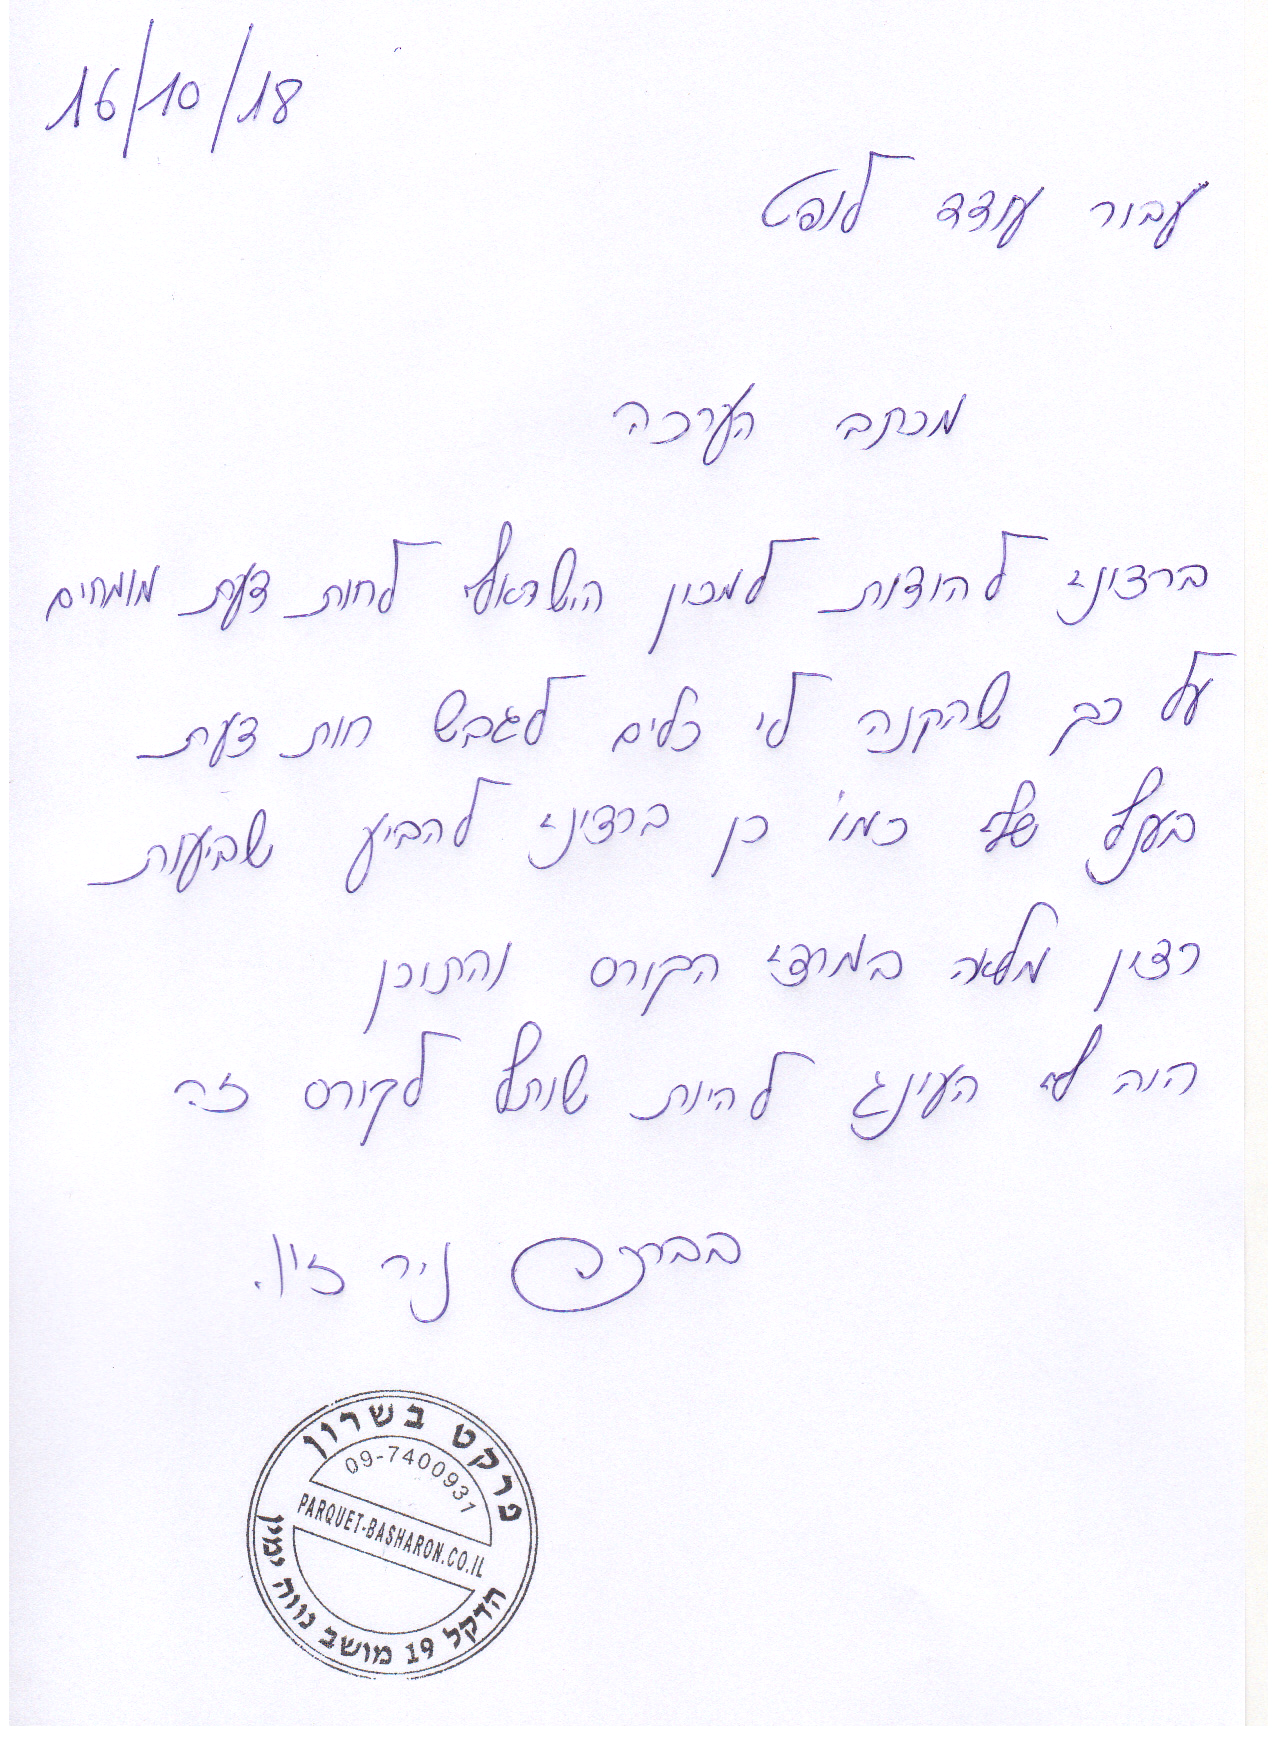 16/10/18
עבור עודד לופט
מכתב הערכה
ברצוני להודות למכון הישראלי לחות דעת מומחים
על כך שהקנה לי כלים לגבש חות דעת
בענף שלי כמו כן ברצוני להביע שביעות
רצון מלאה במרצי הקורס והתוכן
היה לי העונג להיות שותף לקורס זה
בברכה ניר זיו.
פרקט בשרון
09-7400931
PARQUET-BASHARON.CO.IL
הדקל 19 מושב נווה ימין